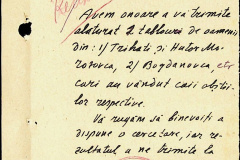 Avem onoare a vă trimite
alăturat 2 tablouri de oamenii
din: 1) Trihati și Hutor Ma-
rotovca, 2) Bogdanovca, etc
cari au vândut cai obștii-
lor respective.
Vă rugăm să binevoiți a
dispune o cercetare, iar re-
zultatul a ne trimite la